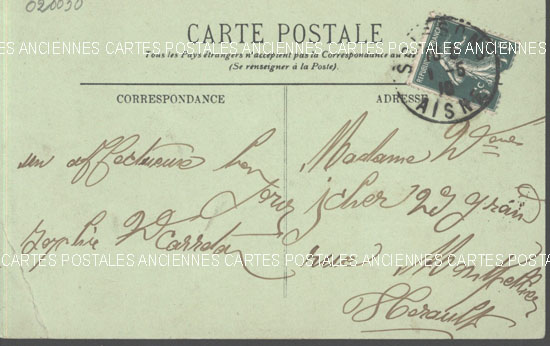 020030
CARTE POSTALE
CARTES POSTALES ANCIENNES CARTES POSTALES ANCIENNES CARTES POSTALES
Tous les Pays étrangers n'acceptent pas la Correspondance au
(Se renseigner à la Poste).
CORRESPONDANCE
ADRESSE
AISNE
un affectueux bon
jour
Sophie
Madame Veuve
23 grand
rue Montpellier
Herault
CARTES POSTALES ANCIENNES CARTES POSTALES ANCIENNES CARTES POSTALES